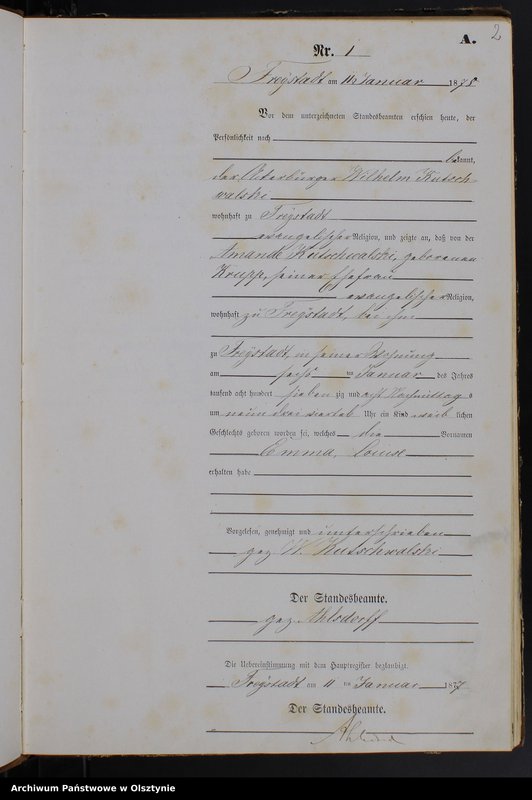 2
A.
Nr. 1
Freystadt am 11 Januar 1878
Vor dem unterzeichneten Standesbeamten erschien heute, der
Persönlichkeit nach
bekannt,
der Wilhelm Kutsch-
walski
wohnhaft zu Freystadt
evangelischer Religion, und zeigte an, daß von der
Amanda Kutschwalski, geborenen
Krupp, seiner Ehefrau
evangelischer Religion,
wohnhaft zu Freystadt, bei ihm
zu Freystadt, in seiner Wohnung
am sechs Januar des Jahres
tausend acht hundert sieben zig und acht Nachmittag s
um neun drei viertel Uhr ein Kind weib lichen
Geschlechts geboren worden sei, welches die Vornamen
Emma, Louise
erhalten habe
Vorgelesen, genehmigt und unterschrieben
gez. W. Kutschwalski
Der Standesbeamte.
gez. Ahlsdorff
Die Uebereinstimmung mit dem Hauptregister beglaubigt.
Freystadt am 11 ten Januar 187
Der Standesbeamte.
Archiwum Państwowe w Olsztynie